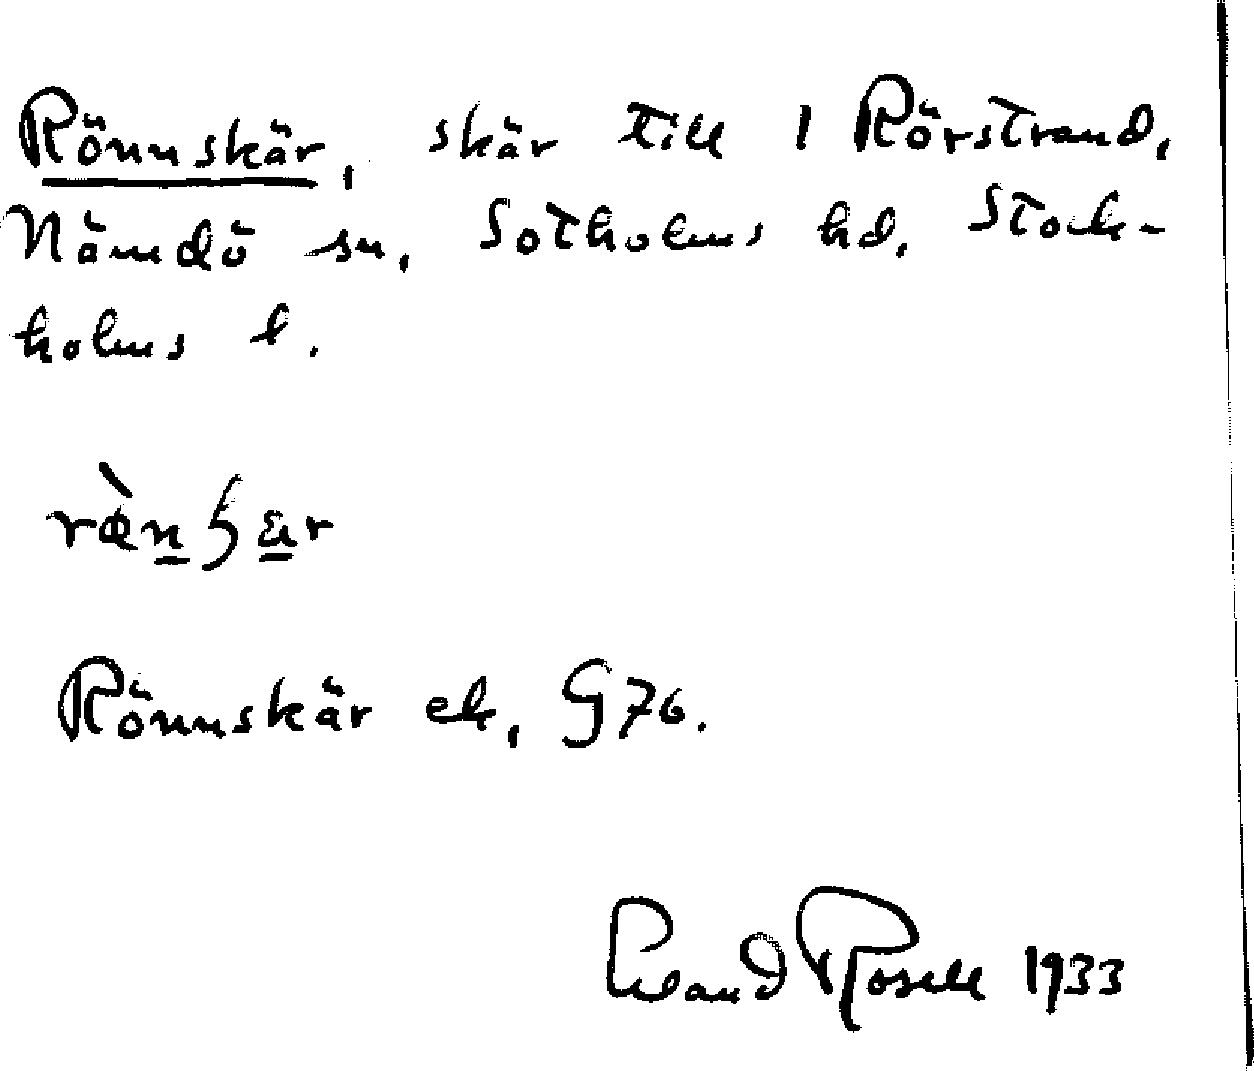 Rönnskär, skär till 1 Rörstrand,
Nämdö sn, Sotholms hd, Stock-
holms l.
Rönnskär ek, G76.
Erland Rosell 1933